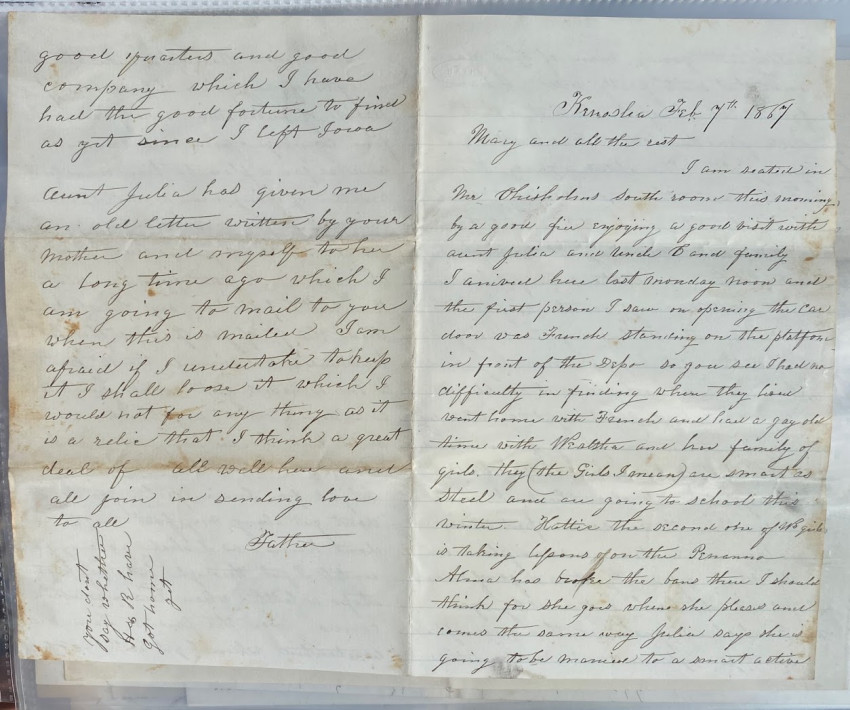 Kenosha Feb. 7th 1867
Mary and all the rest
I am seated in
Mr Chisholms south room this morning
by a good fire enjoying a good visit with
aunt Julia and Uncle C and family
I arrived here last monday noon and
the first person I saw on opening the car
door was French standing on the platform
in front of the Depo so you see I had no
difficulty in finding where they lived
went home with French and had a gay old
time with and her family of
girls. they (the Girls I mean) are smart as
Steel and are going to school this
winter. Hattie the second one of Ws girls
is taking lessons on the
Alma has broke the bans there I should
think for she goes where she pleases and
comes the same way Julia says she is
going to be married to a smart active
good quarters and good
company which I have
had the good fortune to find
as yet since I left Iowa
Aunt Julia has given me
an old letter written by your
Mother and myself to her
a long time ago which I
am going to mail to you
when this is mailed I am
afraid if I undertake to keep
it I shall loose it which I
would not for any thing as it
is a relic that I think a great
deal of all well here and
all join in sending love
to all
Father
you dont
say whether
H & R have
got home
yet